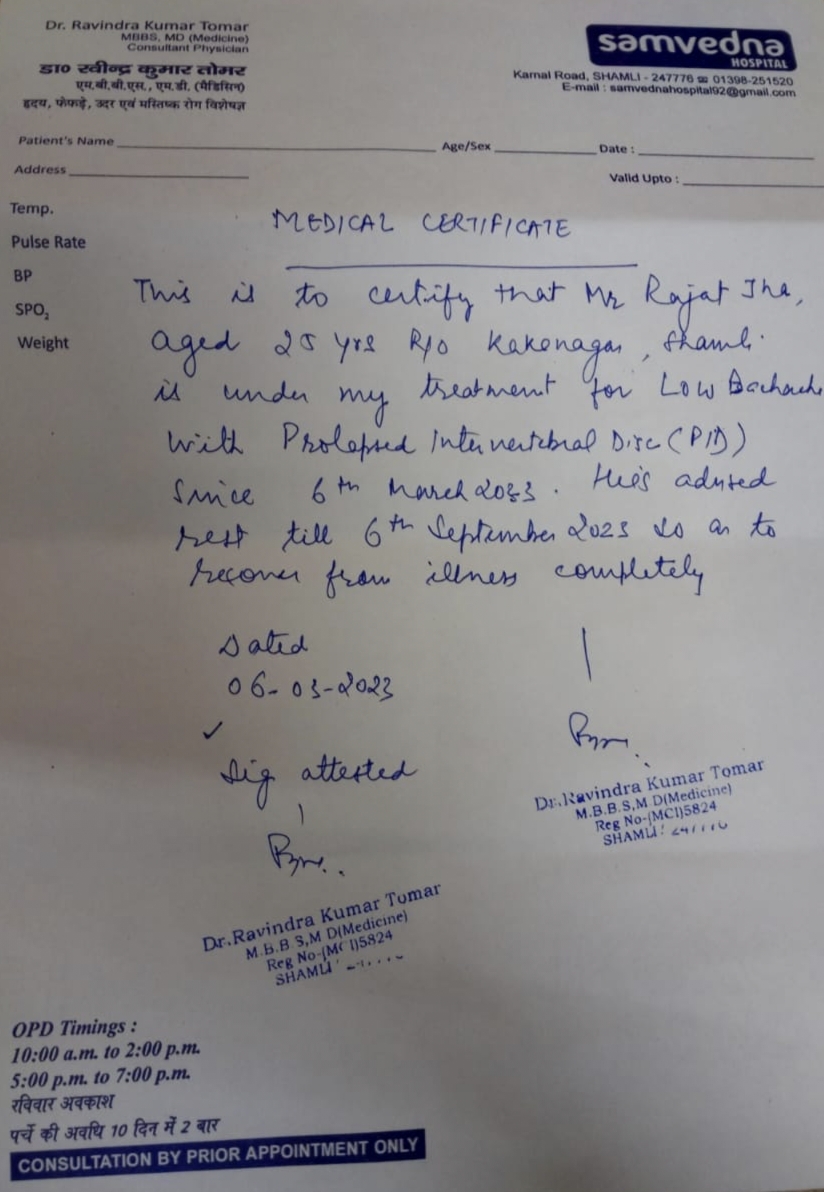 Dr. Ravindra Kumar Tomar
MBBS, MD (Medicine)
Consultant Physician
डा० रवीन्द्र कुमार तोमर
एम.बी.बी.एस., एम.डी. (मैडिसिन)
हृदय, फेफड़े, उदर एवं मस्तिष्क रोग विशेषज्ञ
samvedna
HOSPITAL
Karnal Road, SHAMLI - 247776 ☎ 01398-251520
E-mail : samvednahospital92@gmail.com
Patient's Name Age/Sex Date :
Address Valid Upto :
Temp.
Pulse Rate
BP
SPO₂
Weight
MEDICAL CERTIFICATE
This is to certify that Mr Rajat Jha,
aged 25 yrs R/o Kakanagar, Shamli
is under my treatment for Low Backache
With Prolapsed Intervertebral Disc (PID)
Since 6th March 2023. He is advised
rest till 6th September 2023 so as to
recover from illness completely
Dated
06-03-2023
Sig attested
Dr.Ravindra Kumar Tomar
M.B.B.S,M D(Medicine)
Reg No-(MCI)5824
SHAMLI
Dr.Ravindra Kumar Tomar
M.B.B.S,M D(Medicine)
Reg No-(MCI)5824
SHAMLI
OPD Timings :
10:00 a.m. to 2:00 p.m.
5:00 p.m. to 7:00 p.m.
रविवार अवकाश
पर्चे की अवधि 10 दिन में 2 बार
CONSULTATION BY PRIOR APPOINTMENT ONLY